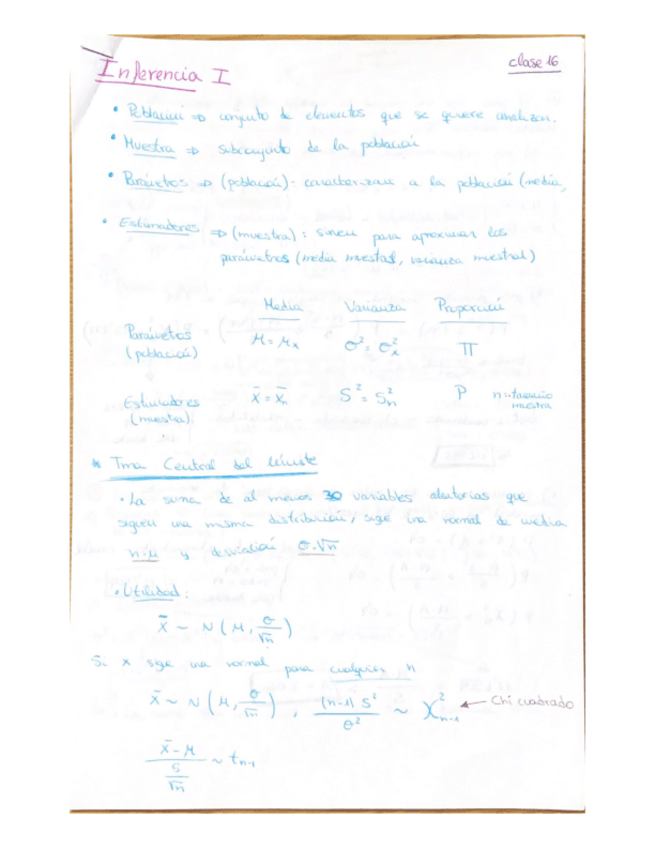 Inferencia I
clase 16
• Población => conjunto de elementos que se quiere analizar.
• Muestra => subconjunto de la población
• Parámetros => (población): caracterizan a la población (media,
• Estimadores => (muestra): sirven para aproximar los
parámetros (media muestral, varianza muestral)
Media Varianza Proporción
Parámetros (población) μ = μx σ² = σx² π
Estimadores (muestra) x̄ = x̄n S² = Sn² P n: tamaño muestra
* Tma Central del límite
• La suma de al menos 30 variables aleatorias que
siguen una misma distribución, sigue una normal de media
n·μ y desviación σ·√n
• Utilidad:
x̄ ~ N(μ, σ/√n)
Si x sigue una normal para cualquier n
x̄ ~ N(μ, σ/√n), (n-1) S²/σ² ~ χ²n-1 ← Chi cuadrado
(x̄-μ)/(S/√n) ~ tn-1